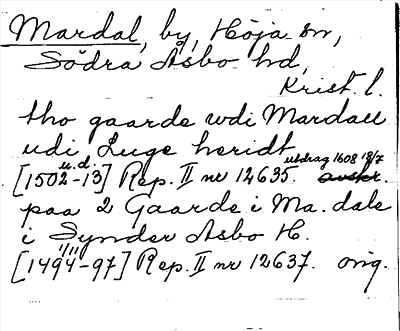 Mardal, by, Höja sn,
Södra Åsbo hd,
Krist. l.
tho gaarde wdi Mardall
udi Luge heridt
u.d. utdrag 1608 18/7
[1502-13] Rep. II nr 12635.
paa 2 Gaarde i Ma. dale
i Synder Asbo H.
1/11
[1494-97] Rep. II nr 12637. orig.